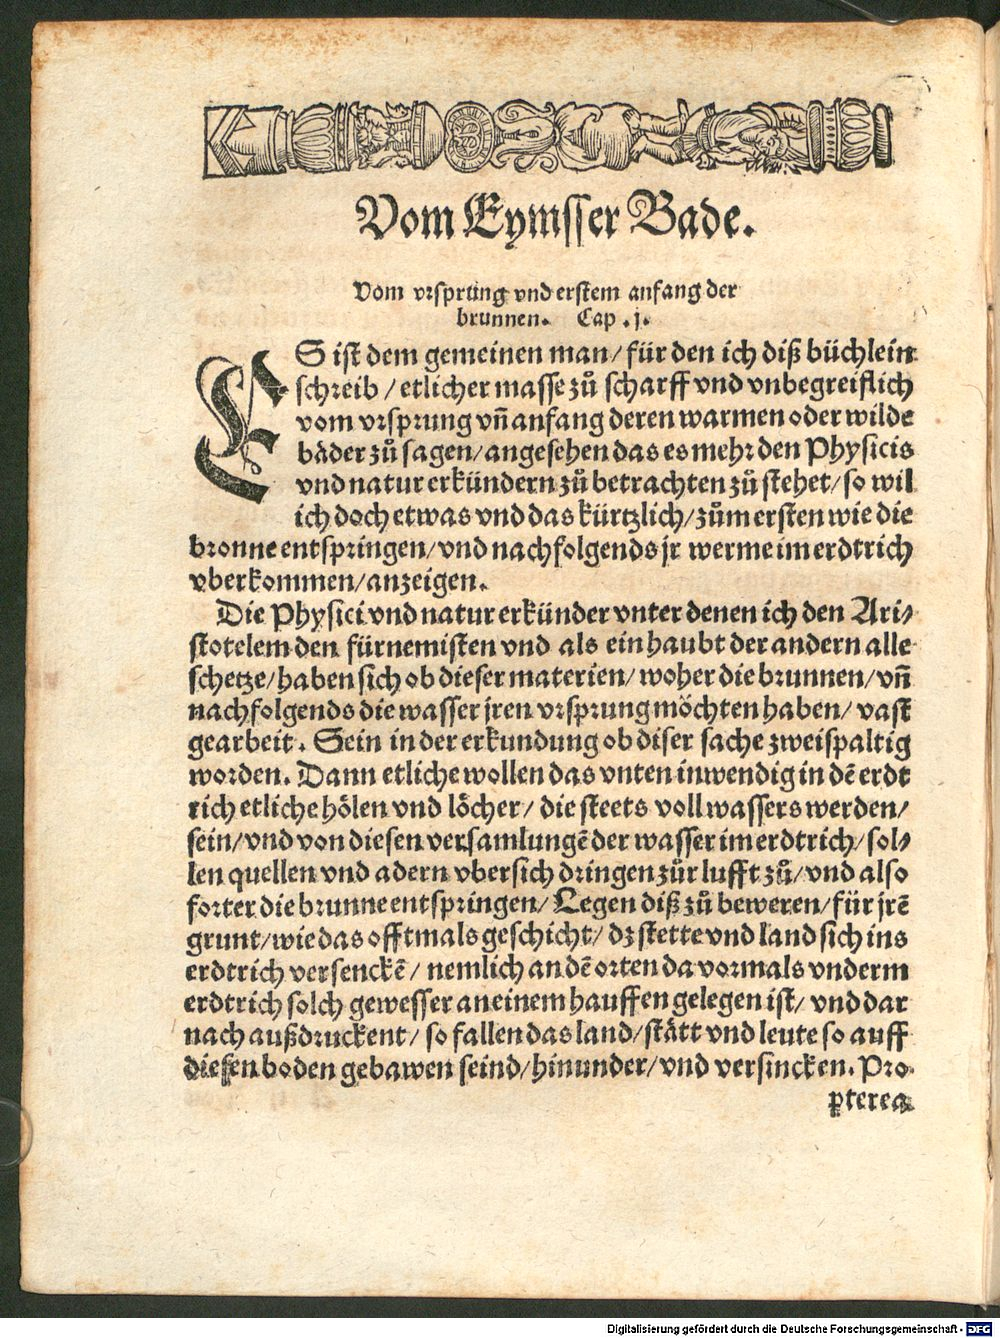 Vom Eymsser Bade.
Vom vrsprüng vnd erstem anfang der
brunnen. Cap .j.
ES ist dem gemeinen man/ für den ich diß büchlein
schreib / etlicher masse zů scharff vnd vnbegreiflich
vom vrsprung vñ anfang deren warmen oder wilde
bäder zů sagen/ angesehen das es mehr den Physicis
vnd natur erkündern zů betrachten zů stehet/ so wil
ich doch etwas vnd das kürtzlich/ zům ersten wie die
bronne entspringen/ vnd nachfolgends jr werme im erdtrich
vberkommen/ anzeigen.
Die Physici vnd natur erkünder vnter denen ich den Ari⸗
stotelem den fürnemisten vnd als ein haubt der andern alle
schetze/ haben sich ob dieser materien/ woher die brunnen/ vñ
nachfolgends die wasser jren vrsprung möchten haben/ vast
gearbeit. Sein in der erkundung ob diser sache zweispaltig
worden. Dann etliche wollen das vnten inwendig in dē erdt
rich etliche hölen vnd löcher / die steets voll wassers werden/
sein/ vnd von diesen versamlungē der wasser im erdtrich/ sol⸗
len quellen vnd adern vbersich dringen zůr lufft zů/ vnd also
forter die brunne entspringen/ Legen diß zů beweren/ für jrē
grunt/ wie das offtmals geschicht/ dz stette vnd land sich ins
erdtrich versenckē / nemlich an dē orten da vormals vnderm
erdtrich solch gewesser an einem hauffen gelegen ist/ vnd dar
nach außdruckent/ so fallen das land/ stätt vnd leute so auff
diesen boden gebawen seind/ hinunder/ vnd versincken. Pro⸗
pterea
Digitalisierung gefördert durch die Deutsche Forschungsgemeinschaft - DFG